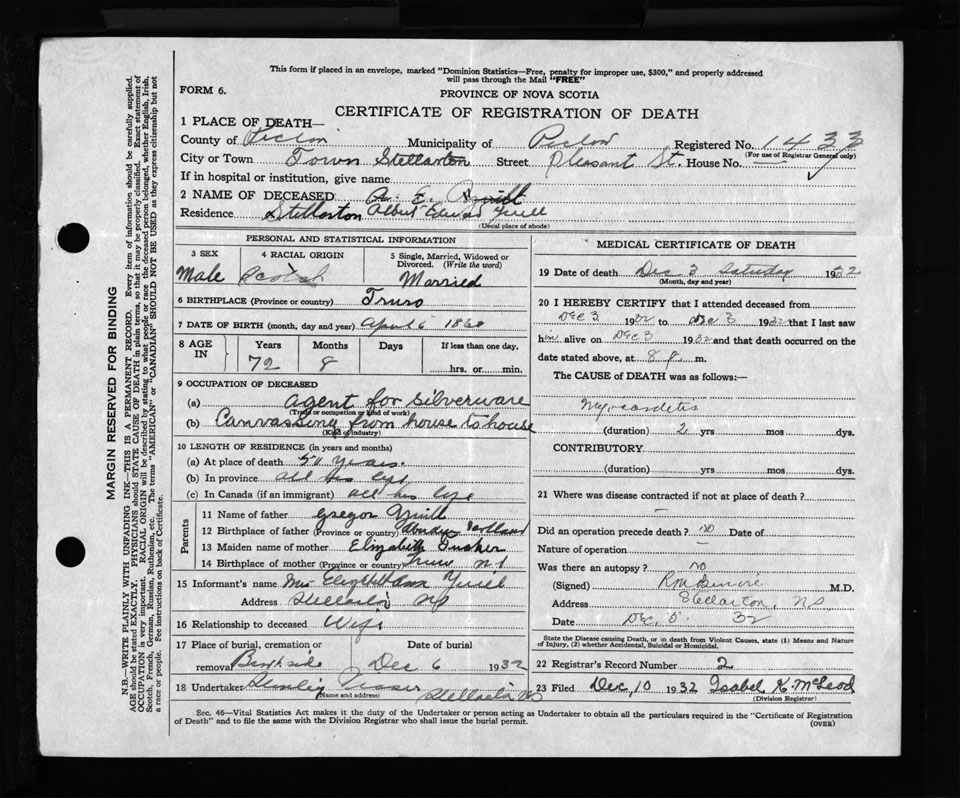 This form if placed in an envelope, marked "Dominion Statistics—Free, penalty for improper use, $300," and properly addressed
will pass through the Mail "FREE"
FORM 6.
PROVINCE OF NOVA SCOTIA
CERTIFICATE OF REGISTRATION OF DEATH
1 PLACE OF DEATH—
County of Pictou Municipality of Pictou Registered No. 1433
(For use of Registrar General only)
City or Town Town Stellarton Street Pleasant St. House No. —
If in hospital or institution, give name
2 NAME OF DECEASED A. E. Yuill
Residence Stellarton Albert Edward Yuill
(Usual place of abode)
PERSONAL AND STATISTICAL INFORMATION
3 SEX
Male
4 RACIAL ORIGIN
Scotch
5 Single, Married, Widowed or
Divorced. (Write the word)
Married
6 BIRTHPLACE (Province or country) Truro
7 DATE OF BIRTH (month, day and year) April 6 1860
8 AGE
IN
Years
72
Months
8
Days
If less than one day,
hrs. or min.
9 OCCUPATION OF DECEASED
(a) agent for silverware
(Trade or occupation or kind of work)
(b) Canvassing from house to house
(Kind of industry)
10 LENGTH OF RESIDENCE (in years and months)
(a) At place of death years.
(b) In province all his life
(c) In Canada (if an immigrant) all his life
Parents
11 Name of father Gregor Yuill
12 Birthplace of father (Province or country)
13 Maiden name of mother Elizabeth
14 Birthplace of mother (Province or country) Truro N S
15 Informant's name Mrs Yuill
Address Stellarton N S
16 Relationship to deceased Wife
17 Place of burial, cremation or Date of burial
removal Dec 6 1932
18 Undertaker Stellarton N S
Name and address
MEDICAL CERTIFICATE OF DEATH
19 Date of death Dec 3 Saturday 1932
(Month, day and year)
20 I HEREBY CERTIFY that I attended deceased from
Dec 3 1932 to Dec 3 1932 that I last saw
him alive on Dec 3 1932 and that death occurred on the
date stated above, at 8 p. m.
The CAUSE of DEATH was as follows:
Myocarditis
(duration) 2 yrs mos dys.
CONTRIBUTORY.
(duration) yrs mos dys.
21 Where was disease contracted if not at place of death?
—
Did an operation precede death? no Date of
Nature of operation —
Was there an autopsy? no
(Signed) M.D.
Address Stellarton, N S
Date Dec. 5 32
State the Disease causing Death, or in death from Violent Causes, state (1) Means and Nature
of Injury, (2) whether Accidental, Suicidal or Homicidal.
22 Registrar's Record Number 2
23 Filed Dec, 10 1932 Isabel K McLeod
(Division Registrar)
Sec. 46—Vital Statistics Act makes it the duty of the Undertaker or person acting as Undertaker to obtain all the particulars required in the "Certificate of Registration
of Death" and to file the same with the Division Registrar who shall issue the burial permit.
(OVER)
MARGIN RESERVED FOR BINDING
N.B.—WRITE PLAINLY WITH UNFADING INK—THIS IS A PERMANENT RECORD. Every item of information should be carefully supplied.
AGE should be stated EXACTLY. PHYSICIANS should STATE CAUSE OF DEATH in plain terms, so that it may be properly classified. Exact statement of
OCCUPATION is very important. RACIAL ORIGIN will be described by stating to what people or race the deceased person belonged, whether English, Irish,
Scotch, French, German, Russian, Ruthenian, etc. The terms "AMERICAN" or "CANADIAN" SHOULD NOT BE USED as they express citizenship but not
a race or people. See instructions on back of Certificate.